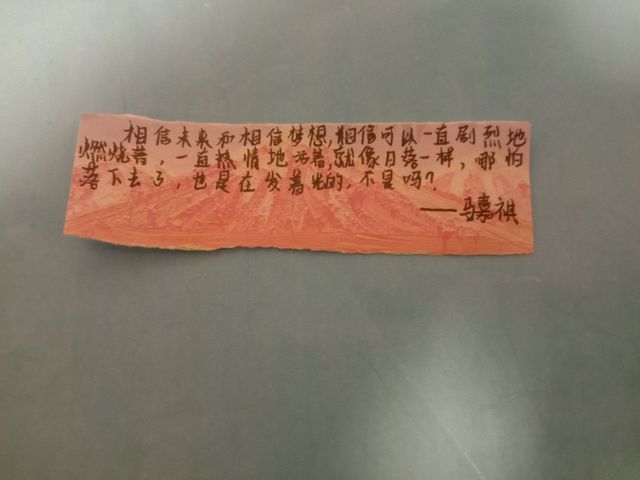 相信未来和相信梦想,相信可以一直剧烈地
燃烧着,一直热情地活着,就像日落一样,哪怕
落下去了,也是在发着光的,不是吗?
——马嘉祺